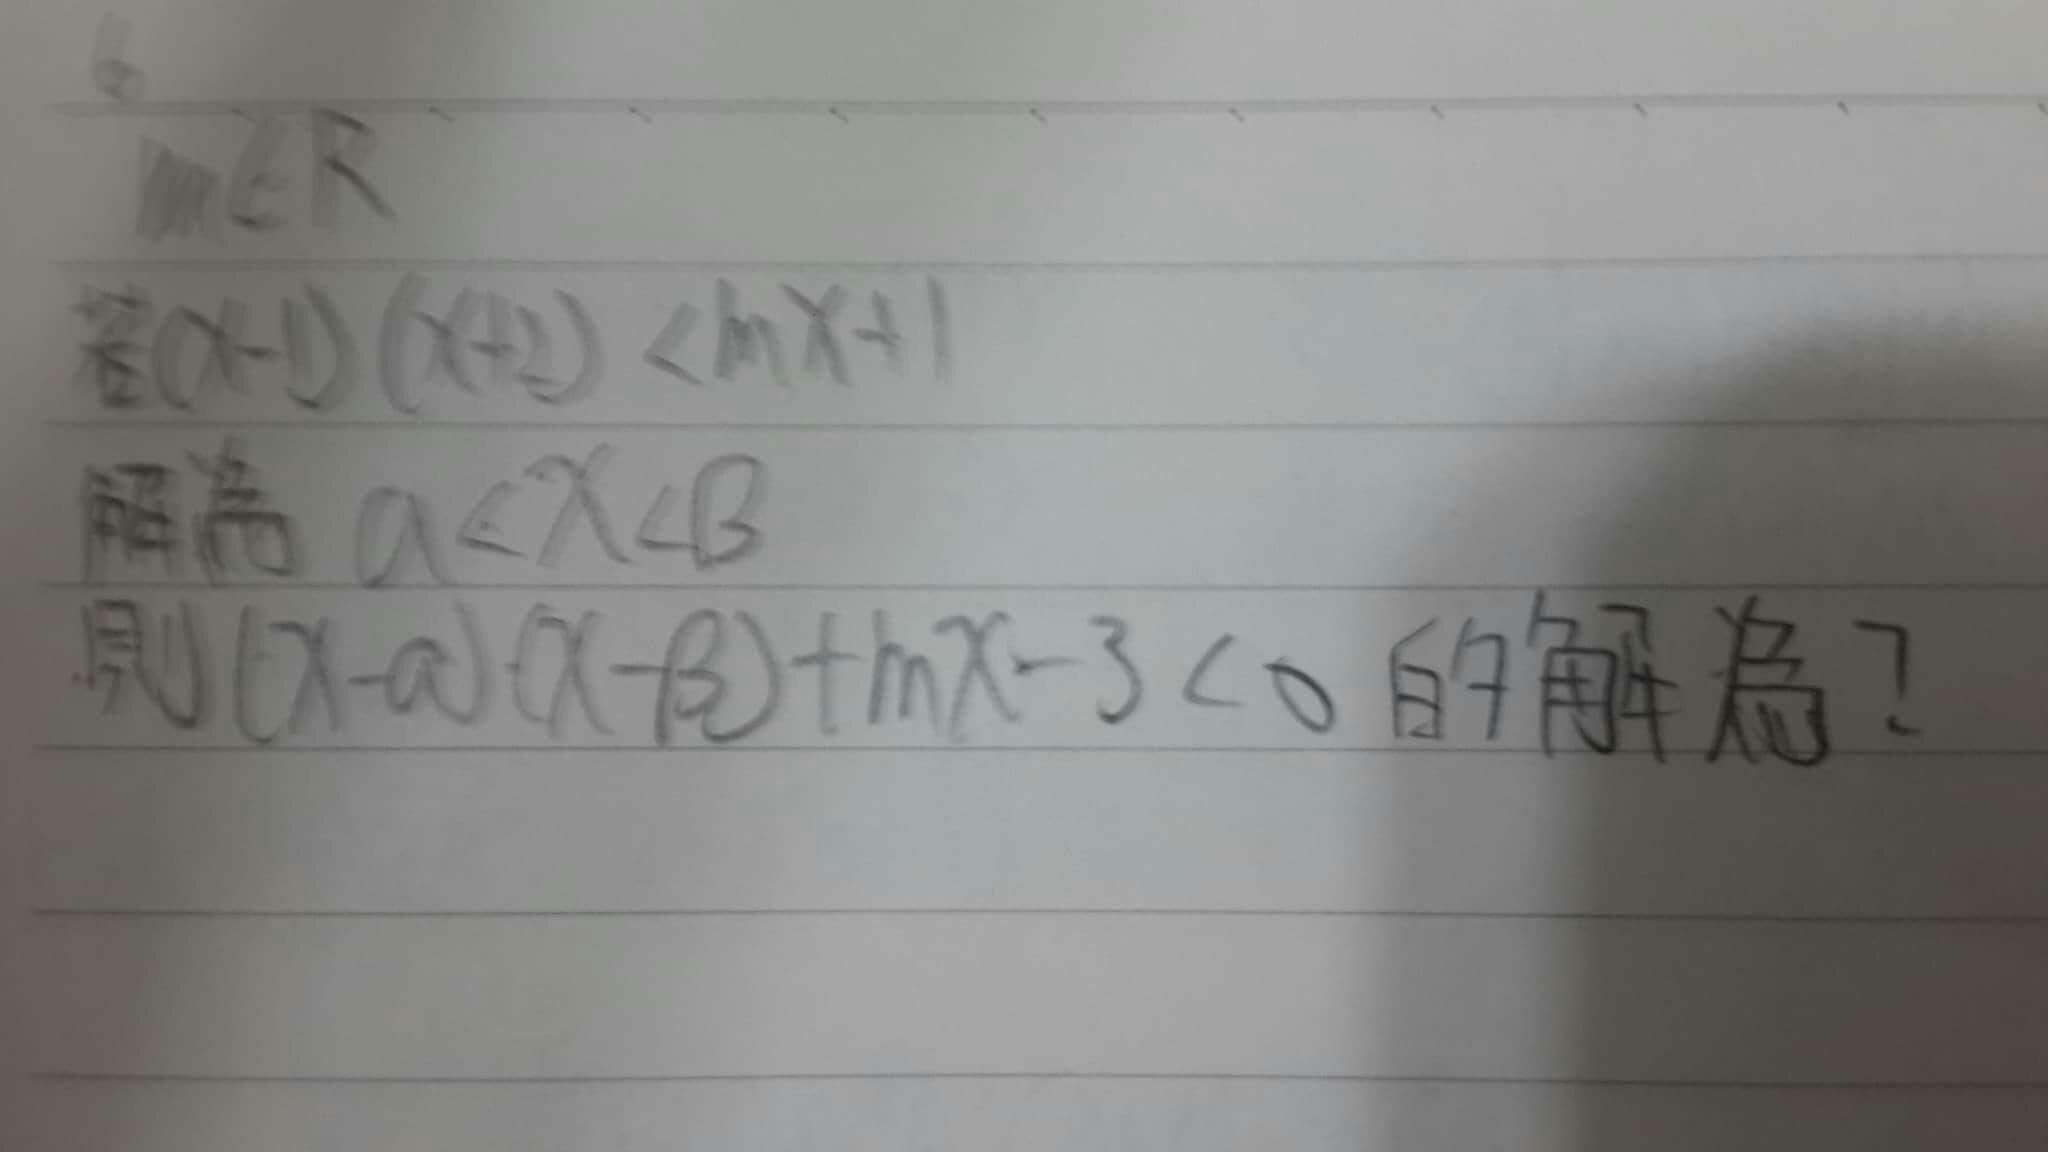 6
m∈R
若(x-1)(x+2)<mx+1
解為 a<x<β
則(x-a)(x-β)+mx-3<0 的解為?